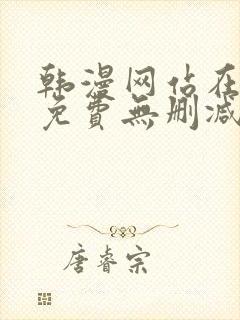 韩漫网站在
免費無删减
唐睿宗